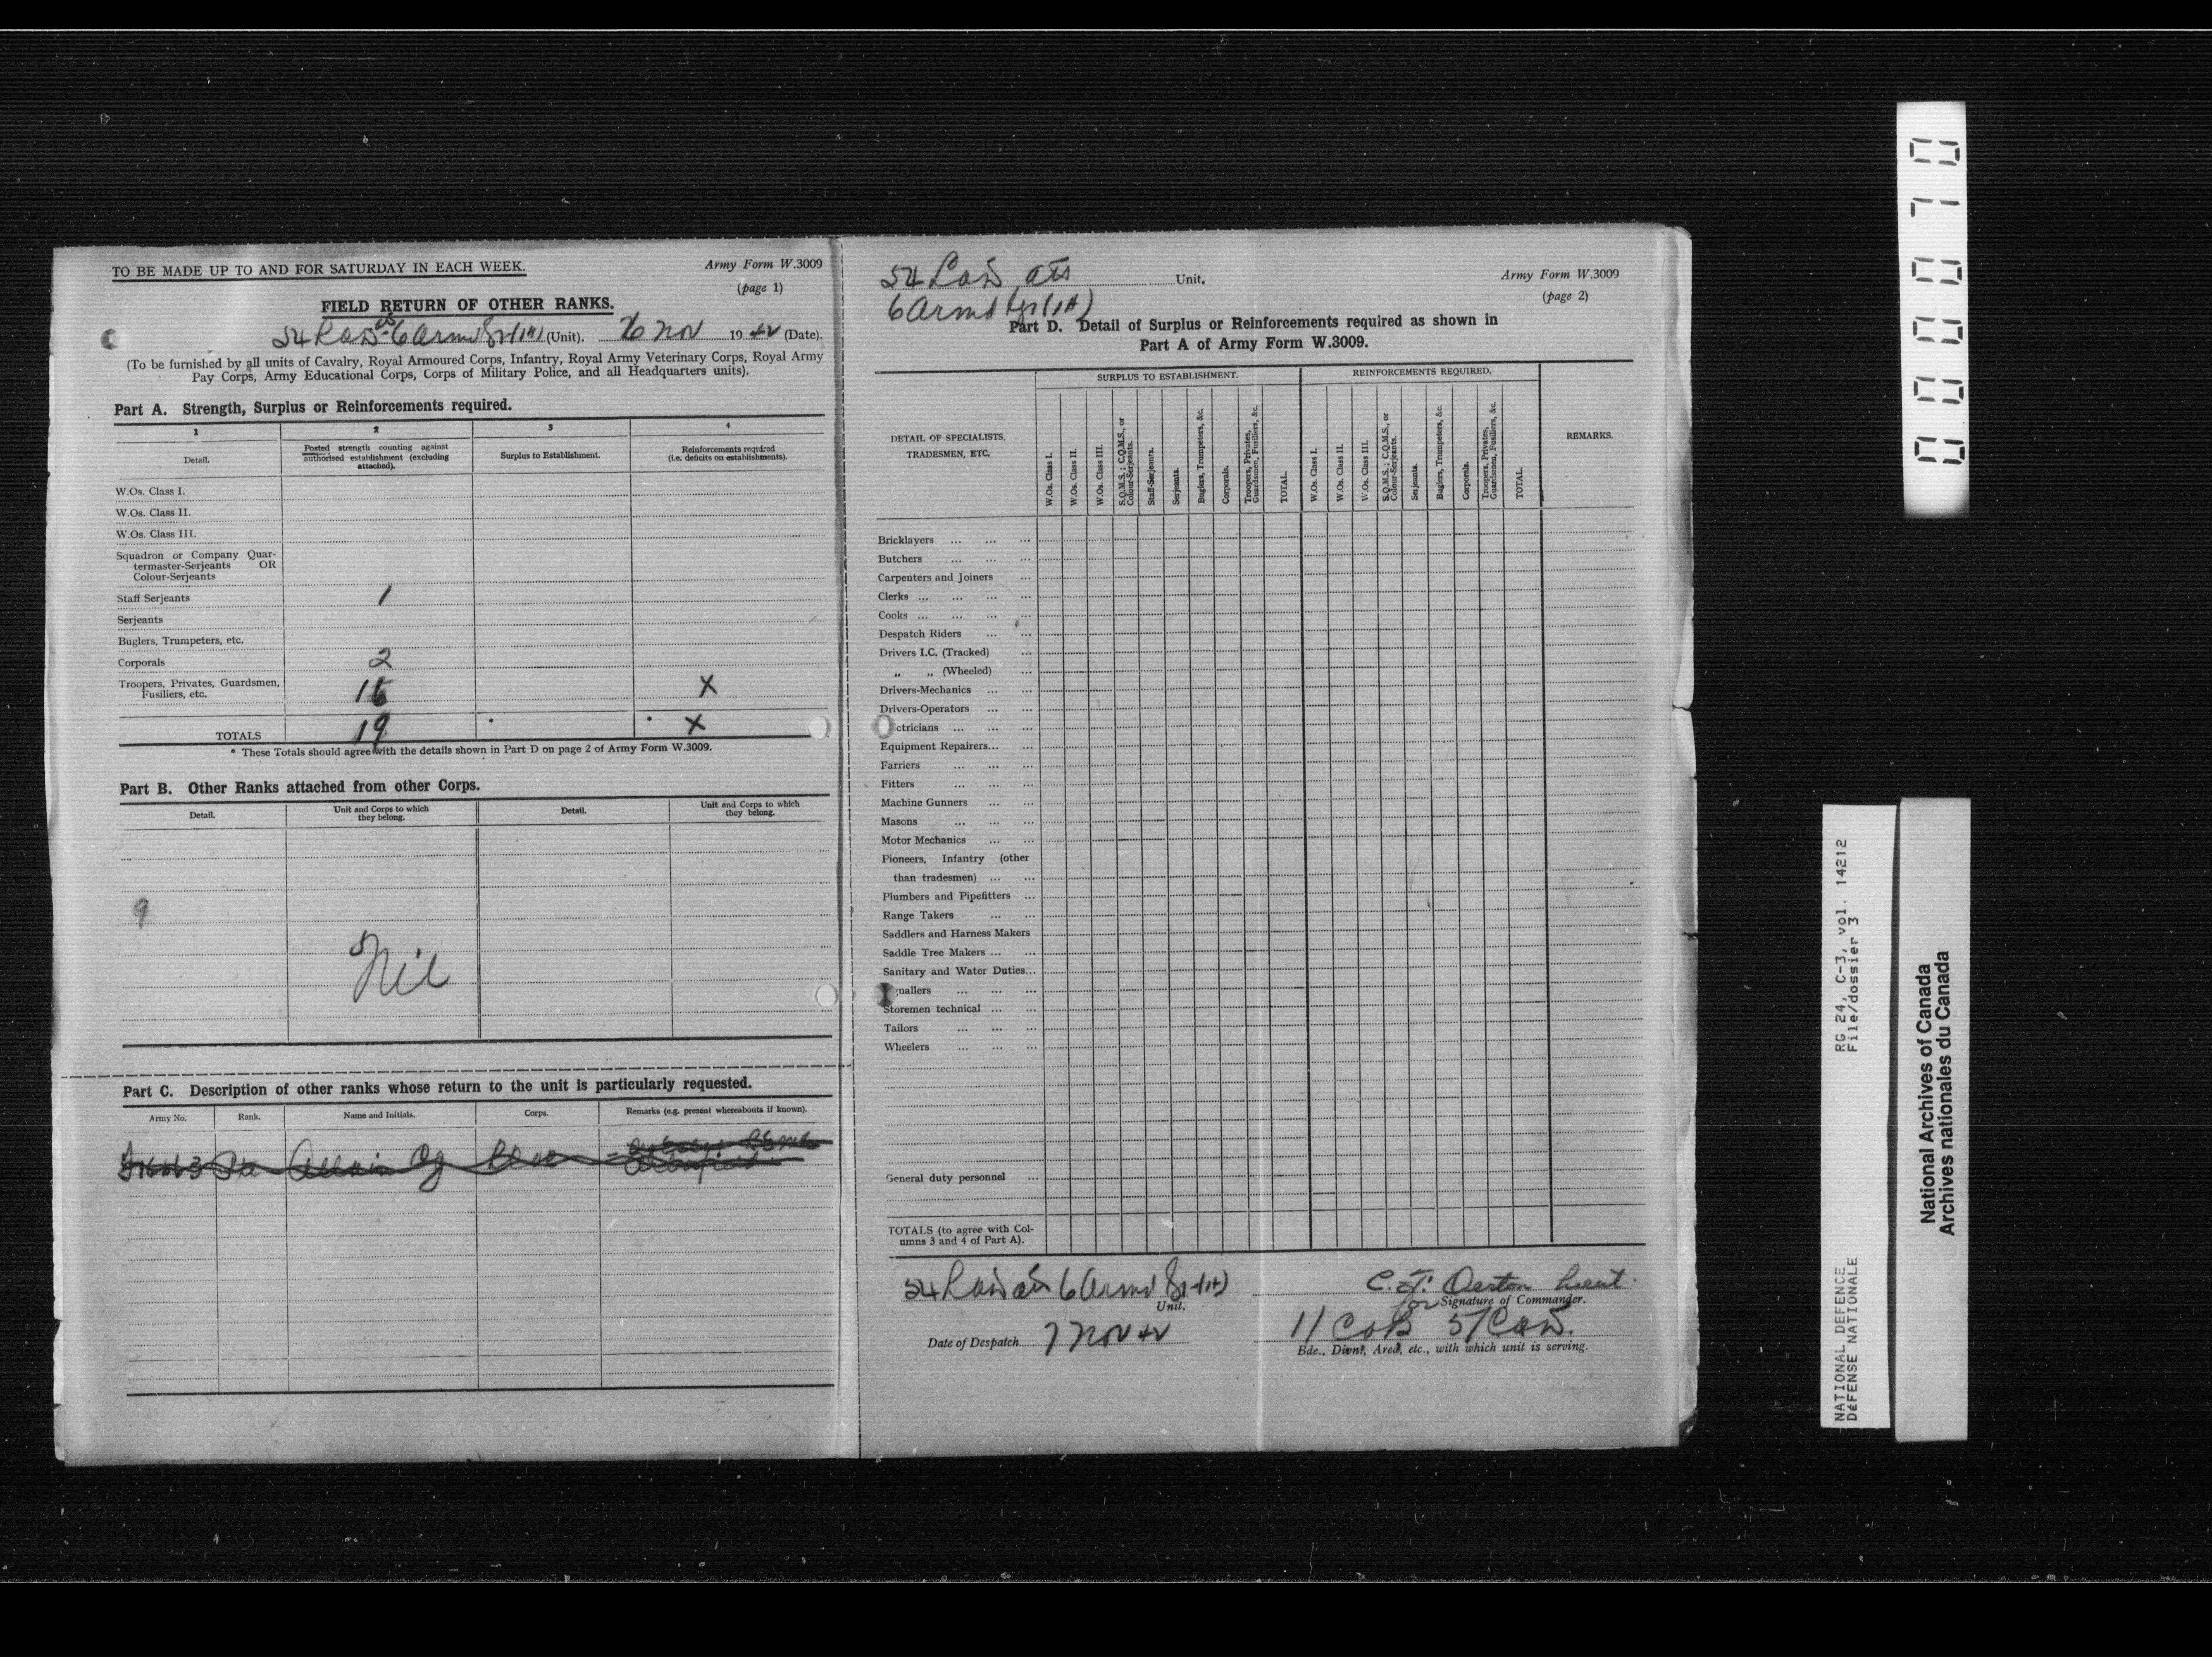 TO BE MADE UP TO AND FOR SATURDAY IN EACH WEEK.
Army Form W.3009
(page 1)
FIELD RETURN OF OTHER RANKS.
54 LAD 6 Armd (Unit). Nov 19 42 (Date).
(To be furnished by all units of Cavalry, Royal Armoured Corps, Infantry, Royal Army Veterinary Corps, Royal Army
Pay Corps, Army Educational Corps, Corps of Military Police, and all Headquarters units).
Part A. Strength, Surplus or Reinforcements required.
1 2 3 4
Detail.
Posted strength counting against
authorised establishment (excluding
attached).
Surplus to Establishment.
Reinforcements required
(i.e. deficits on establishments).
W.Os. Class I.
W.Os. Class II.
W.Os. Class III.
Squadron or Company Quar-
termaster-Serjeants OR
Colour-Serjeants
Staff Serjeants 1
Serjeants
Buglers, Trumpeters, etc.
Corporals 2
Troopers, Privates, Guardsmen,
Fusiliers, etc. 16 X
TOTALS 19 * * X
* These Totals should agree with the details shown in Part D on page 2 of Army Form W.3009.
Part B. Other Ranks attached from other Corps.
Detail.
Unit and Corps to which
they belong.
Detail.
Unit and Corps to which
they belong.
9
Nil
Part C. Description of other ranks whose return to the unit is particularly requested.
Army No. Rank. Name and Initials. Corps. Remarks (e.g. present whereabouts if known).
54 LAD Unit.
6 Armd
Army Form W.3009
(page 2)
Part D. Detail of Surplus or Reinforcements required as shown in
Part A of Army Form W.3009.
DETAIL OF SPECIALISTS,
TRADESMEN, ETC.
SURPLUS TO ESTABLISHMENT.
W.Os. Class I.
W.Os. Class II.
W.Os. Class III.
S.Q.M.S.; C.Q.M.S., or
Colour-Serjeants.
Staff-Serjeants.
Serjeants.
Buglers, Trumpeters, &c.
Corporals.
Troopers, Privates,
Guardsmen, Fusiliers, &c.
TOTAL.
REINFORCEMENTS REQUIRED.
W.Os. Class I.
W.Os. Class II.
W.Os. Class III.
S.Q.M.S.; C.Q.M.S., or
Colour-Serjeants.
Serjeants.
Buglers, Trumpeters, &c.
Corporals.
Troopers, Privates,
Guardsmen, Fusiliers, &c.
TOTAL.
REMARKS.
Bricklayers ... ... ...
Butchers ... ... ...
Carpenters and Joiners ...
Clerks ... ... ... ...
Cooks ... ... ... ...
Despatch Riders ... ...
Drivers I.C. (Tracked) ...
„ „ (Wheeled) ...
Drivers-Mechanics ... ...
Drivers-Operators ... ...
ctricians ... ... ...
Equipment Repairers... ...
Farriers ... ... ...
Fitters ... ... ...
Machine Gunners ... ...
Masons ... ... ...
Motor Mechanics ... ...
Pioneers, Infantry (other
than tradesmen) ... ...
Plumbers and Pipefitters ...
Range Takers ... ...
Saddlers and Harness Makers
Saddle Tree Makers ... ...
Sanitary and Water Duties...
gnallers ... ... ...
Storemen technical ... ...
Tailors ... ... ...
Wheelers ... ... ...
General duty personnel ...
TOTALS (to agree with Col-
umns 3 and 4 of Part A).
54 LAD 6 Armd
Unit.
C. Lieut.
for Signature of Commander.
Date of Despatch 7 Nov 42
Bde., Divn., Area, etc., with which unit is serving.
00007 0
RG 24, C-3, vol. 14212
File/dossier 3
NATIONAL DEFENCE
DÉFENSE NATIONALE
National Archives of Canada
Archives nationales du Canada